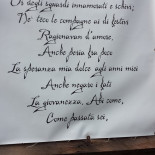 Or degli sguardi innamorati e schivi;
Ne' teco le compagne ai dì festivi
Ragionavan d'amore.
Anche peria fra poco
La speranza mia dolce agli anni miei
Anche negaro i fati
La giovanezza. Ahi come,
Come passata sei,